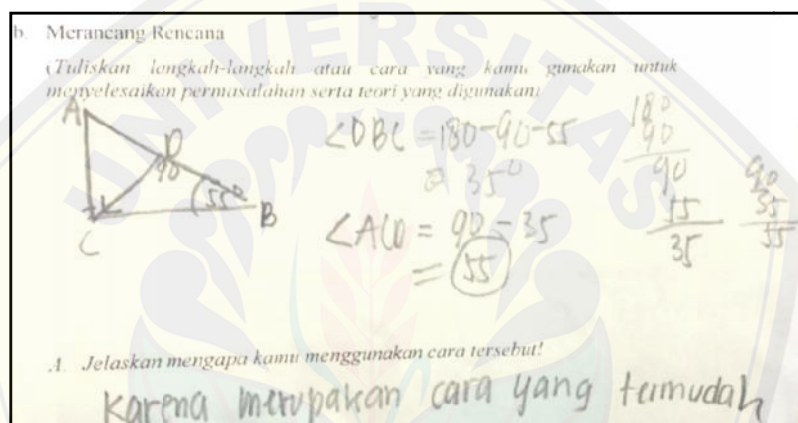 b. Merancang Rencana
(Tuliskan langkah-langkah atau cara yang kamu gunakan untuk
menyelesaikan permasalahan serta teori yang digunakan)
A
D
90
55°
B
C
∠DBC = 180-90-55
= 35°
∠ACD = 90-35
= 55
180
90
90
55
35
90
35
55
A. Jelaskan mengapa kamu menggunakan cara tersebut!
Karena merupakan cara yang termudah
UNIVERSITAS